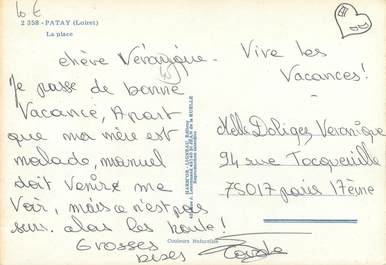 10 €
2 358 - PATAY (Loiret)
La place
chère Véronique.
Je passe de bonne
Vacance, Apart
que ma mère est
malade, manuel
doit venire me
Voir, mais ce n'est pas
sur. alors les boule!
Grosses
bises
Vive les
Vacances!
Melle Doligez Veronique
94 rue Tocqueville
75017 paris 17eme
Couleurs Naturelles